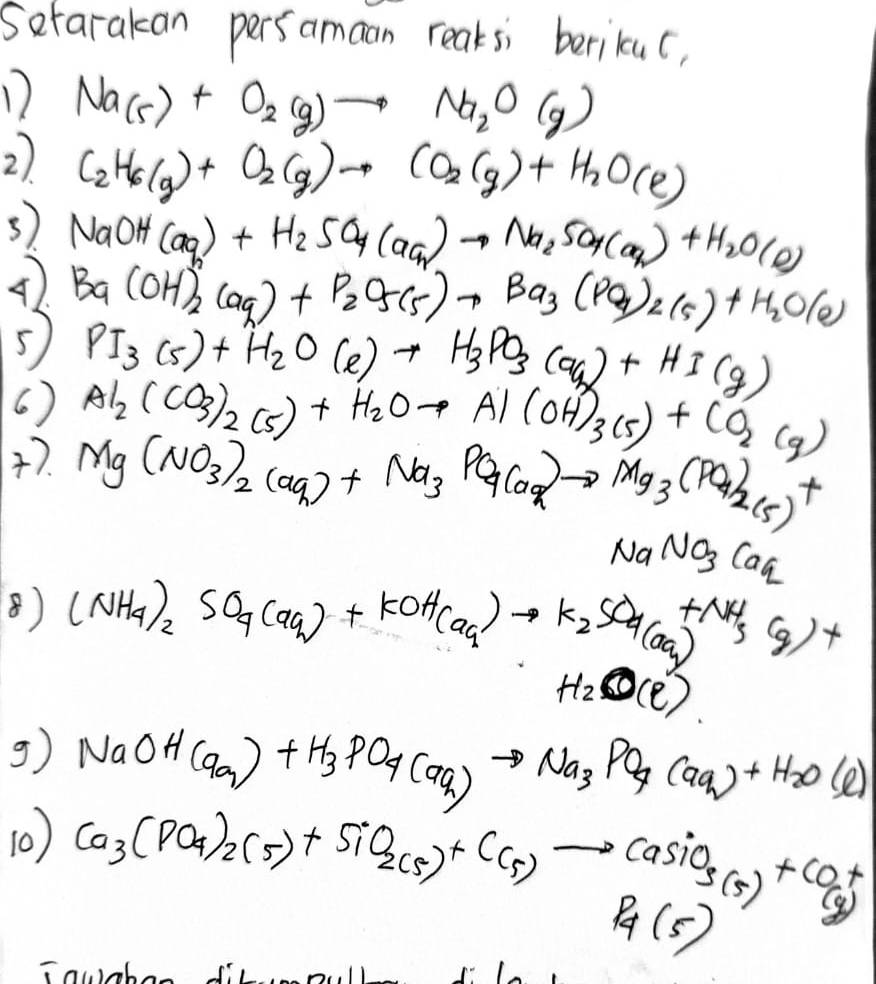 Setarakan persamaan reaksi berikut,
1) Na(s) + O₂(g) → Na₂O (g)
2). C₂H₆(g) + O₂(g) → CO₂(g) + H₂O(l)
3). NaOH(aq) + H₂SO₄(aq) → Na₂SO₄(aq) + H₂O(l)
4). Ba(OH)₂ (aq) + P₂O₅(s) → Ba₃(PO₄)₂(s) + H₂O(l)
5) PI₃(s) + H₂O(l) → H₃PO₃(aq) + HI(g)
6) Al₂(CO₃)₂(s) + H₂O → Al(OH)₃(s) + CO₂(g)
7). Mg(NO₃)₂(aq) + Na₃PO₄(aq) → Mg₃(PO₄)₂(s) +
NaNO₃(aq
8) (NH₄)₂SO₄(aq) + KOH(aq) → K₂SO₄(aq) + NH₃(g) +
H₂O(l).
9) NaOH(aq) + H₃PO₄(aq) → Na₃PO₄(aq) + H₂O(l)
10) Ca₃(PO₄)₂(s) + SiO₂(s) + C(s) → CaSiO₃(s) + CO(g) +
P₄(s)
Jawaban dikumpulkan di